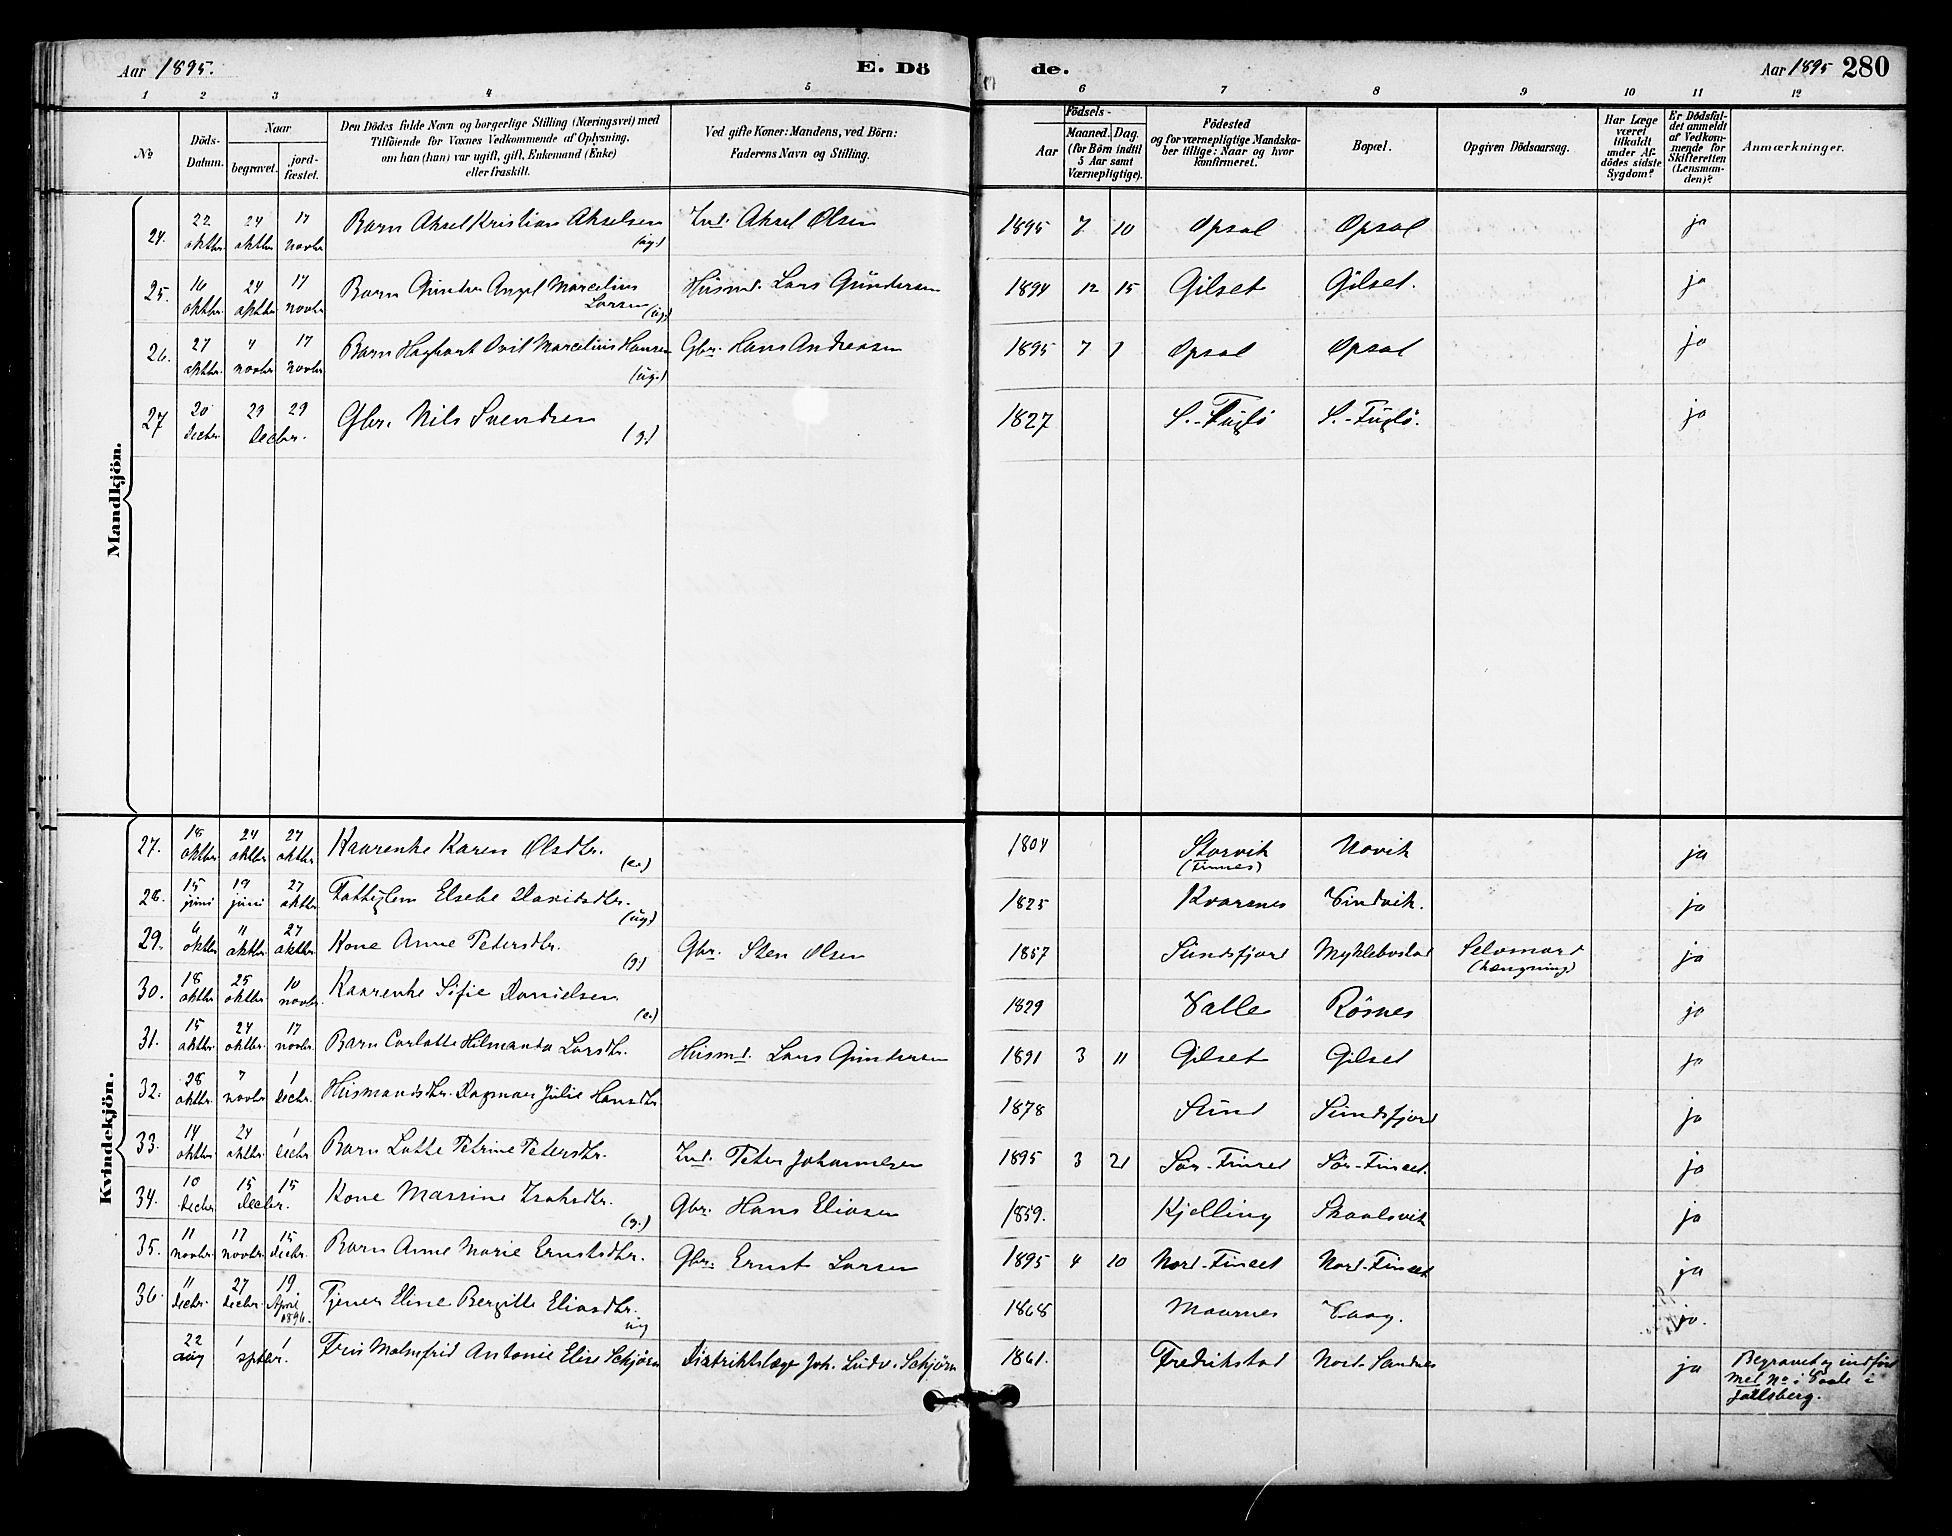 Aar 1895. E. Dö de. Aar 1895 280
1 2 3 4 5 6 7 8 9 10 11 12
No
Döds-Datum.
Naar
begravet.
jord-fæstet.
Den Dödes fulde Navn og borgerlige Stilling (Næringsvei) med
Tilföiende for Voxnes Vedkommende af Oplysning.
om han (hun) var ugift, gift, Enkemand (Enke)
eller fraskilt.
Ved gifte Koner: Mandens, ved Börn:
Faderens Navn og Stilling.
Födsels-
Aar
Maaned. Dag.
(for Börn indtil
5 Aar samt
Værnepligtige).
Födested
og for værnepligtige Mandska-
ber tillige: Naar og hvor
konfirmeret.
Bopæl.
Opgiven Dödsaarsag.
Har Læge
været
tilkaldt
under Af-
dödes sidste
Sygdom?
Er Dödsfal-
det anmeldt
af Vedkom-
mende for
Skifteretten
(Lensman-
den)?
Anmærkninger.
Mandkjön.
24. 22 oktbr. 24 oktbr. 17 novbr. Barn Aksel Kristian Akselsen (ug) Ind. Aksel Olsen 1895 7 10 Opsal Opsal ja
25. 16 oktbr. 24 oktbr. 17 novbr. Barn Gunder Angel Marcelius Larsen (ug) Husmd. Lars Gundersen 1894 12 15 Gilset Gilset. ja
26. 27 oktbr. 4 novbr. 17 novbr. Barn Haghart Ovil Marcelius Hansen (ug.) Gbr. Hans Andreasen 1895 7 1 Opsal Opsal ja
27 20 Decbr. 29 29 Decbr. Gbr. Nils Svendsen (g.) 1827 S.-Fuglö S.-Fuglö. ja
Kvindekjön.
27. 18 oktbr. 24 oktbr. 27 oktbr. Kaarenke Karen Olsdtr. (e.) 1804 Storvik (Finnes) Novik ja
28. 15 juni 19 juni 27 oktbr. Fattiglem Elsebe Davidsdtr. (ug) 1825 Kvarsnes Vindvik. ja
29. 4 oktbr. 11 oktbr. 27 oktbr. Kone Anne Petersdtr. (g) Gbr. Sten Olsen 1857 Sundsfjord Myklebostad Selvmord (hængning) ja
30. 18 oktbr. 25 oktbr. 10 novbr. Kaarenke Sofie Danielsen (e.) 1829 Valle Rösnes ja
31. 15 oktbr. 24 oktbr. 17 novbr. Barn Carlotte Hilmanda Larsdtr. Husmd. Lars Gundersen 1891 3 11 Gilset Gilset ja
32. 28 oktbr. 7 novbr. 1 Decbr. Husmandsdtr. Dagmar Julie Hansdtr 1878 Sund Sundsfjord ja
33. 14 oktbr. 24 oktbr. 1 Decbr. Barn Lotte Petrine Petersdtr. Ind. Peter Johannesen 1895 3 21 Sör-Finset Sör-Finset. ja
34. 10 Decbr 15 15 Decbr. Kone Massine Isaksdtr. (g.) Gbr. Hans Eliasen 1859. Kjelling Skaalsvik ja
35. 11 novbr. 17 novbr. 15 Decbr. Barn Anne Marie Ernstsdtr. Gbr. Ernst Larsen 1895 4 10 Nord-Finset Nord-Finset ja
36. 11 Decbr. 27 Decbr. 19 April 1896. Tjener Eline Bergitte Eliasdtr. ug 1868 Maarnes Vaag. ja.
22 aug 1 1 sptbr. Fru Malmfrid Antonie Elise Schjörn Distriktslæge Joh. Ludv. Schjörn 1861. Fredrikstad Nord-Sandnes ja Begravet og indfört
med No i Vaale i
Jallsberg.